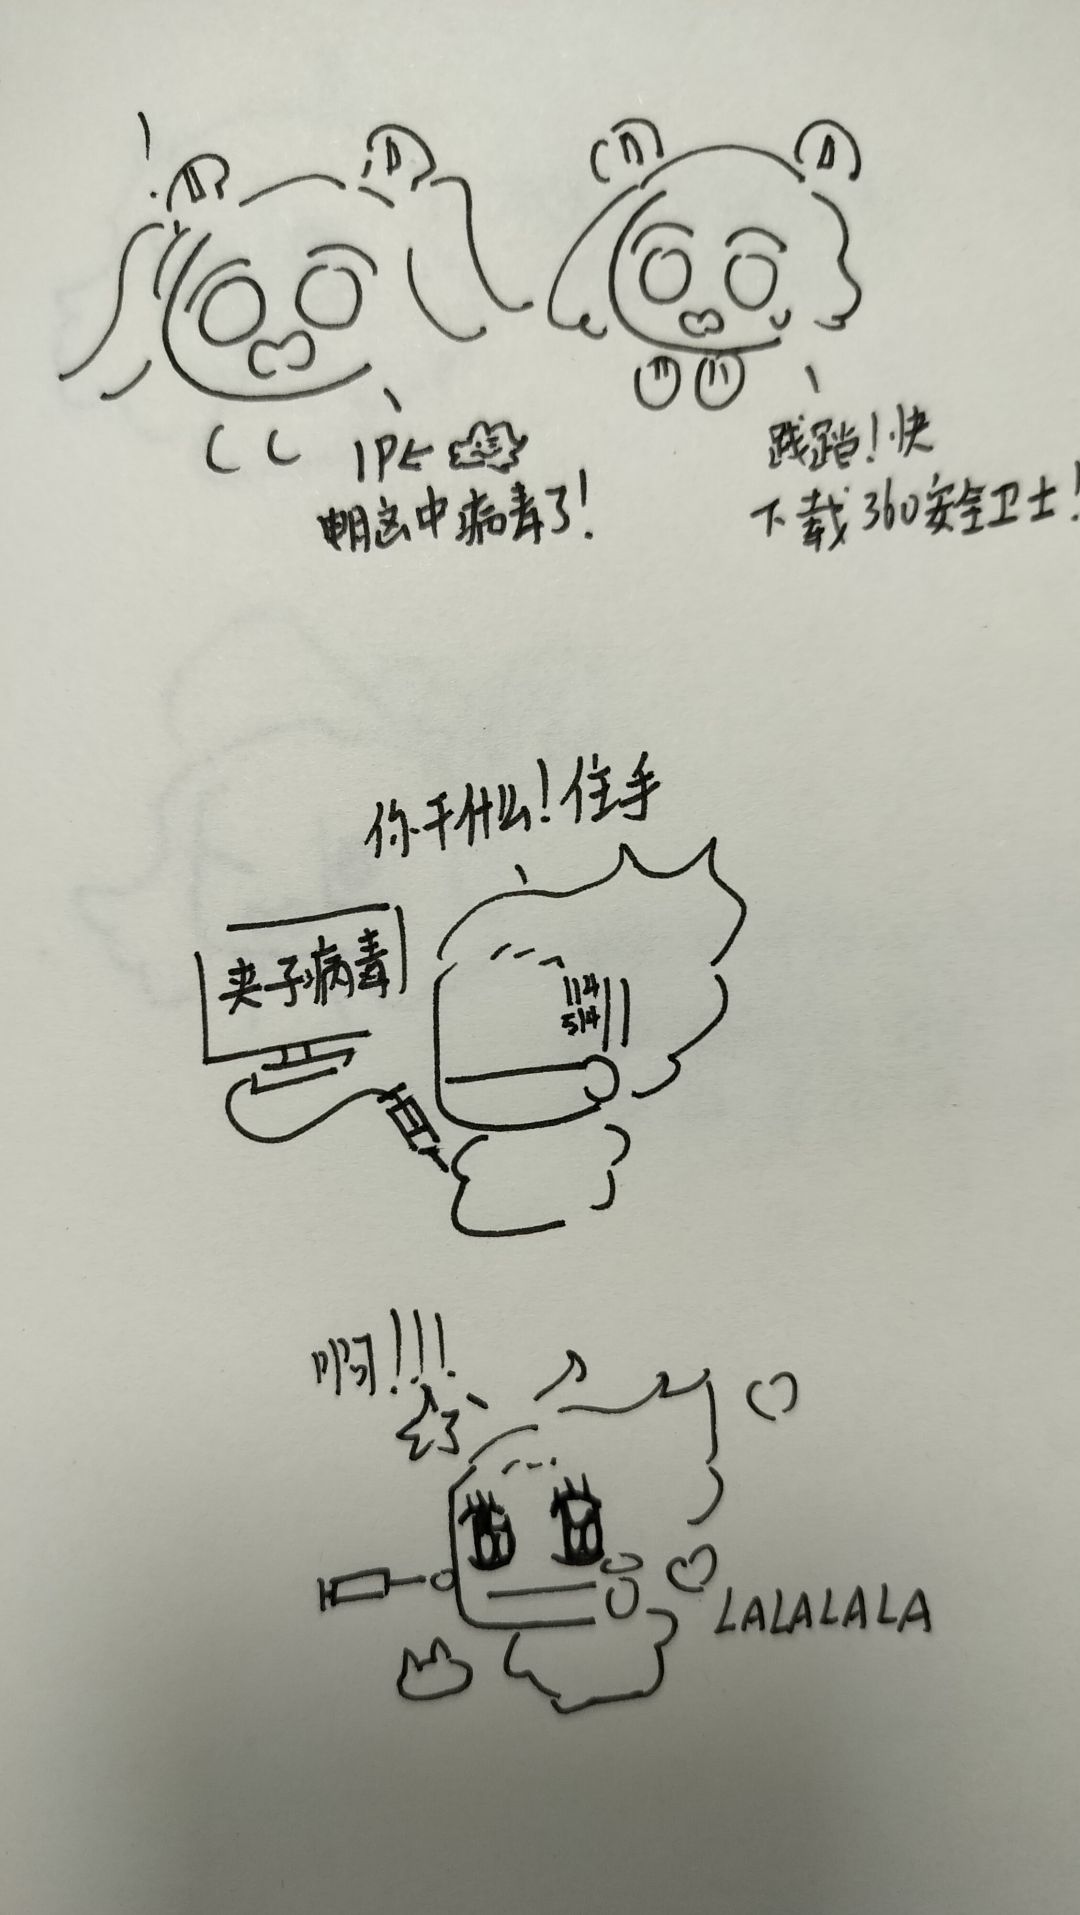 电脑中病毒了!
践踏!快
下载360安全卫士!
你干什么!住手
夹子病毒
114
514
啊!!!
LALALALA